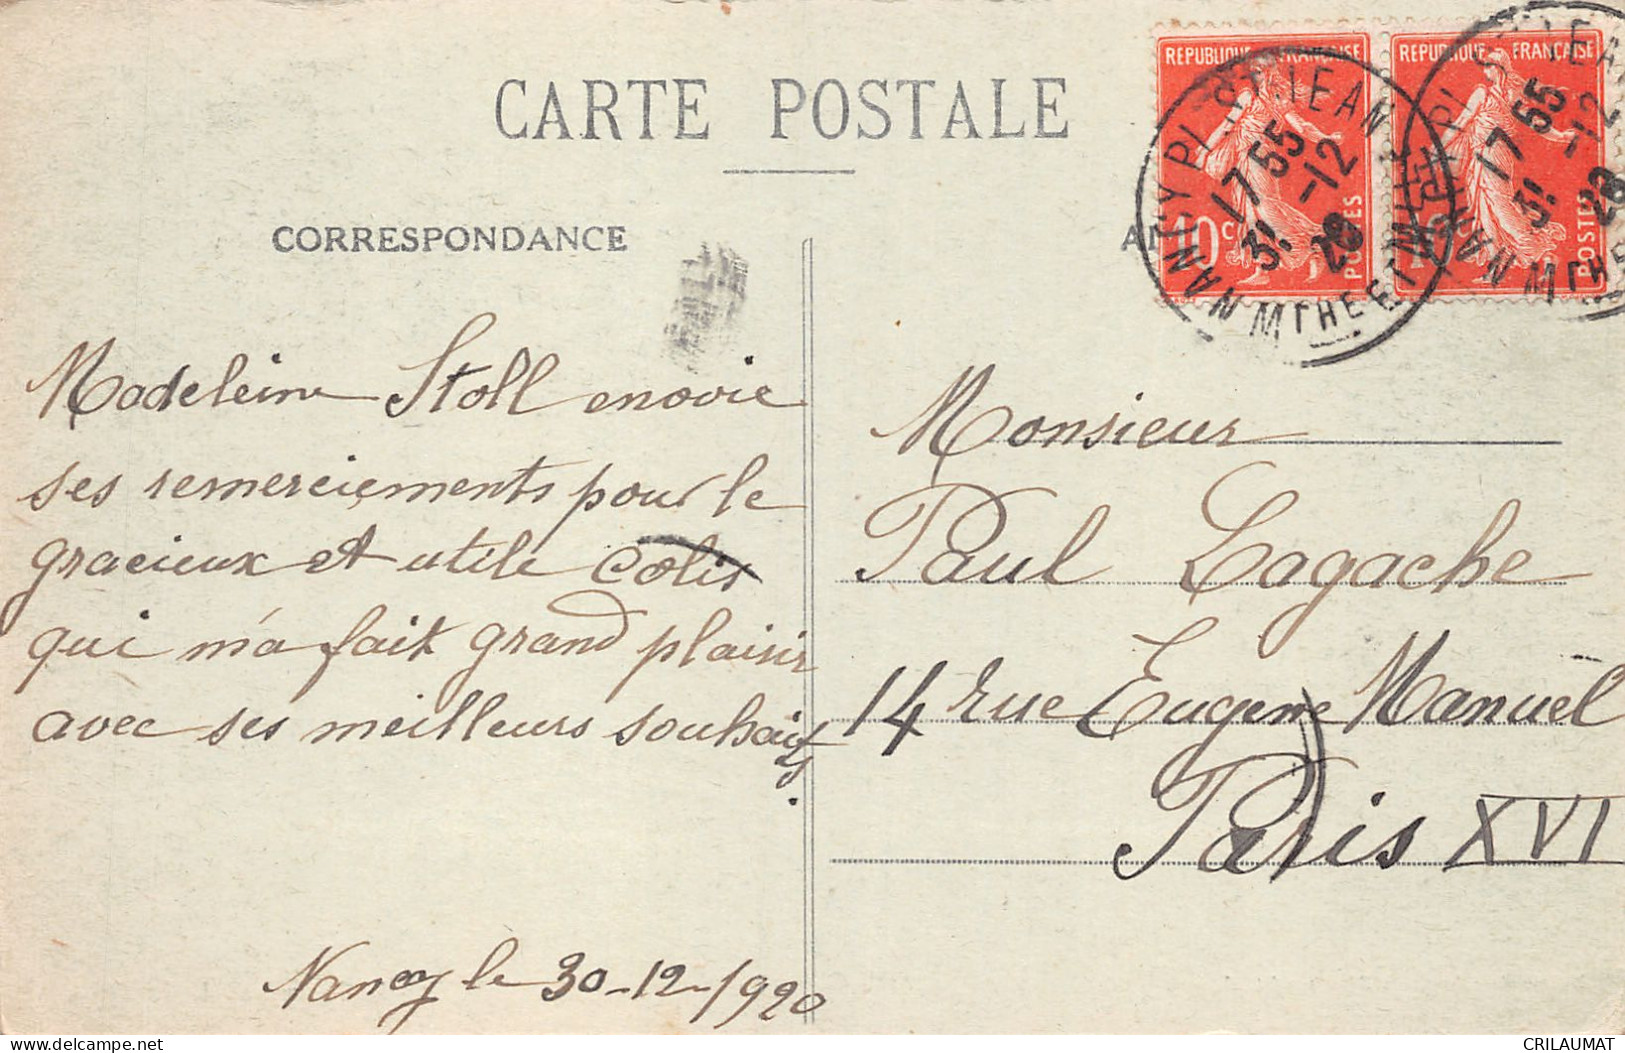 CARTE POSTALE
CORRESPONDANCE
REPUBLIQUE FRANÇAISE
10 c
POSTES
REPUBLIQUE FRANÇAISE
POSTES
NANCY PL. ST JEAN
17 55
31 -12
20
MTHE ET MLLE
17 55
31 -12
20
Madeleine Stoll enovie
ses remerciements pour le
gracieux et utile colis
qui m'a fait grand plaisir
avec ses meilleurs souhaits.
Nancy le 30-12-1920
Monsieur
Paul Lagache
14 rue Eugene Manuel
Paris XVI
delcampe.net
CRILAUMAT